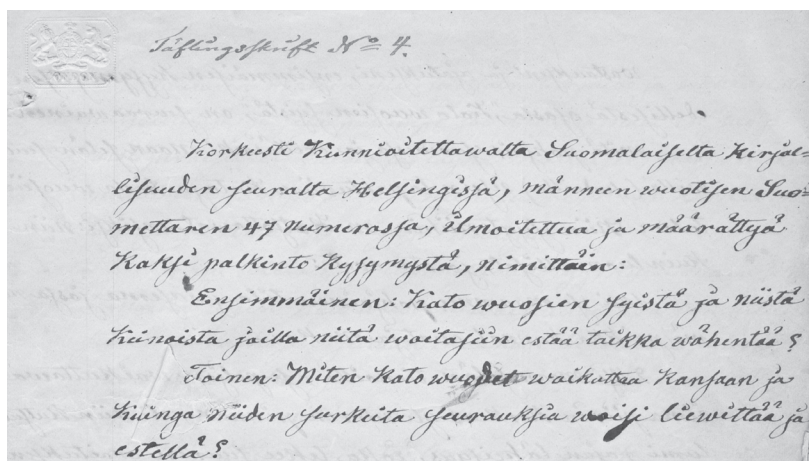 Täflingsskrift No 4.
Korkeesti Kunnioitettawalta Suomalaiselta Kirjal-
lisuuden seuralta Helsingissä, männeen wuotisen Suo-
mettaren 47 numerossa, ilmoitettua ja määrättyä
Kaksi palkinto Kysymystä, nimittäin:
Ensimmäinen: Kato wuosien syistä ja niistä
Keinoista joilla niitä woitasiin estää taikka wähentää?
Toinen: Miten Kato wuodet waikuttaa Kansaan ja
Kuinga niiden surkeita seurauksia woisi liewittää ja
estellä?